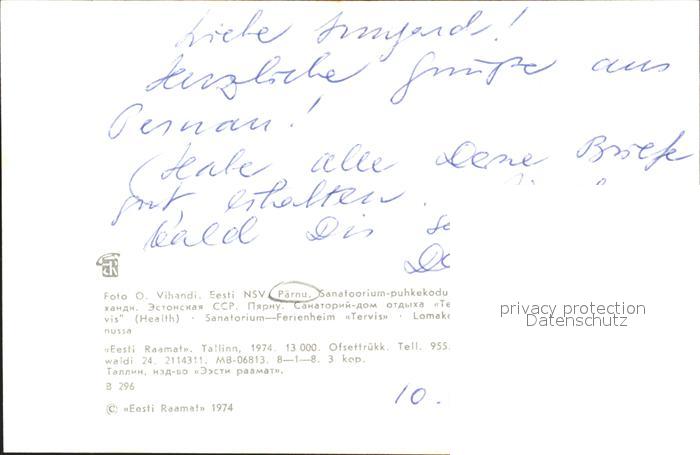 Liebe Irmgard!
Herzliche Grüße aus
Pernau!
(Habe alle Deine Briefe
gut erhalten.
bald Dir
De
Foto O. Vihandi. Eesti NSV. Pärnu. Sanatoorium-puhkekodu
ханди. Эстонская ССР. Пярну. Санаторий-дом отдыха «Te
vis" (Health) · Sanatorium—Ferienheim «Tervis» · Lomako
nussa
«Eesti Raamat». Tallinn, 1974. 13 000. Ofsettrükk. Tell. 955.
waldi 24. 2114311. MB-06813. 8—1—8. 3 kop.
Таллин, изд-во «Ээсти раамат».
B 296
© «Eesti Raamat» 1974
10.
privacy protection
Datenschutz